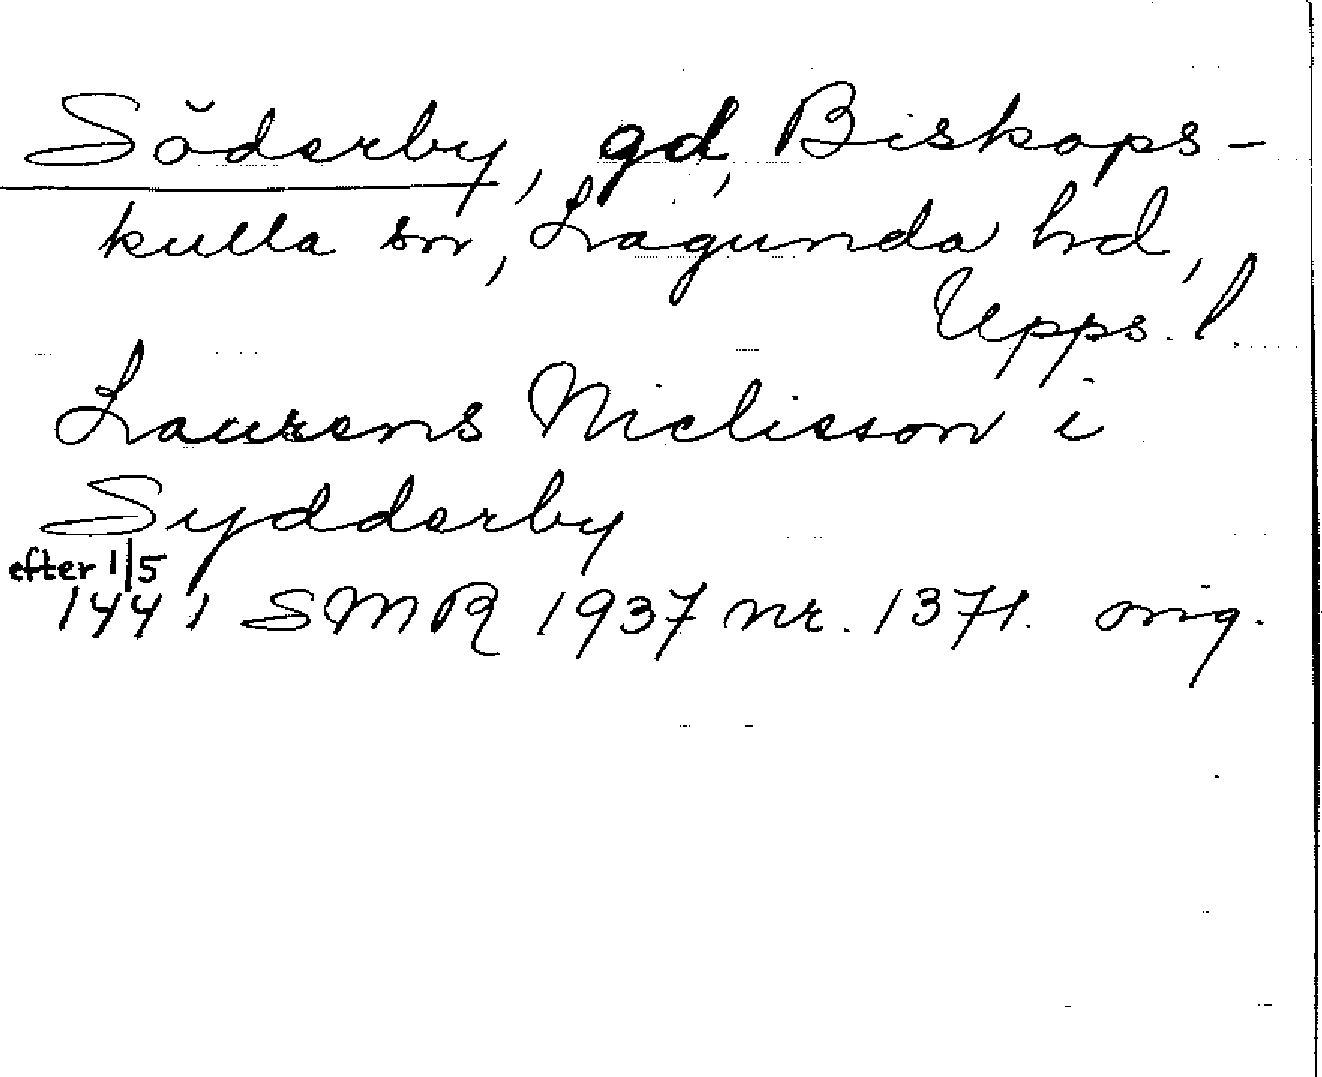 Söderby, gd, Biskops-
kulla sn, Lagunda hd,
Upps. l.
Laurens Niclisson i
Sydderby
efter 1/5
1441 SMR 1937 nr. 1371. orig.